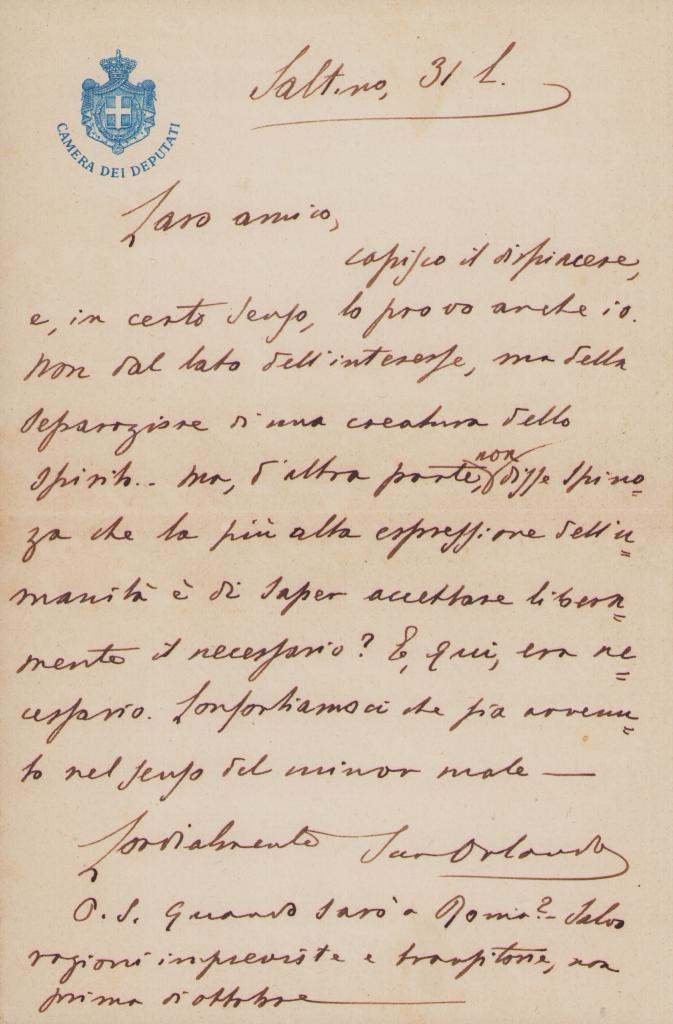 CAMERA DEI DEPUTATI
Saltino, 31 L.
Caro amico,
capisco il dispiacere,
e, in certo senso, lo provo anche io.
Non dal lato dell'interesse, ma della
separazione di una creatura dello
spirito.. Ma, d'altra parte, non disse Spino=
za che la più alta espressione dell'u=
manità è di saper accettare libera=
mente il necessario? E, qui, era ne=
cessario. Confortiamoci che sia avvenu=
to nel senso del minor male —
Cordialmente Suo Orlando
P.S. Quando sarò a Roma? - Salvo
ragioni impreviste e transitorie, non
prima di ottobre —